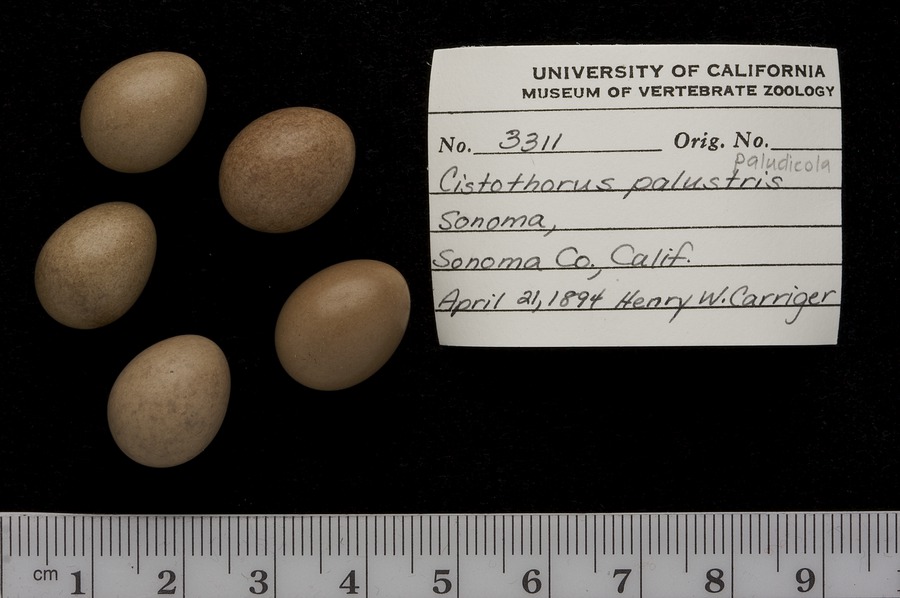 UNIVERSITY OF CALIFORNIA
MUSEUM OF VERTEBRATE ZOOLOGY
No. 3311 Orig. No.
Paludicola
Cistothorus palustris
Sonoma,
Sonoma Co., Calif.
April 21, 1894 Henry W. Carriger
cm 1 2 3 4 5 6 7 8 9 1